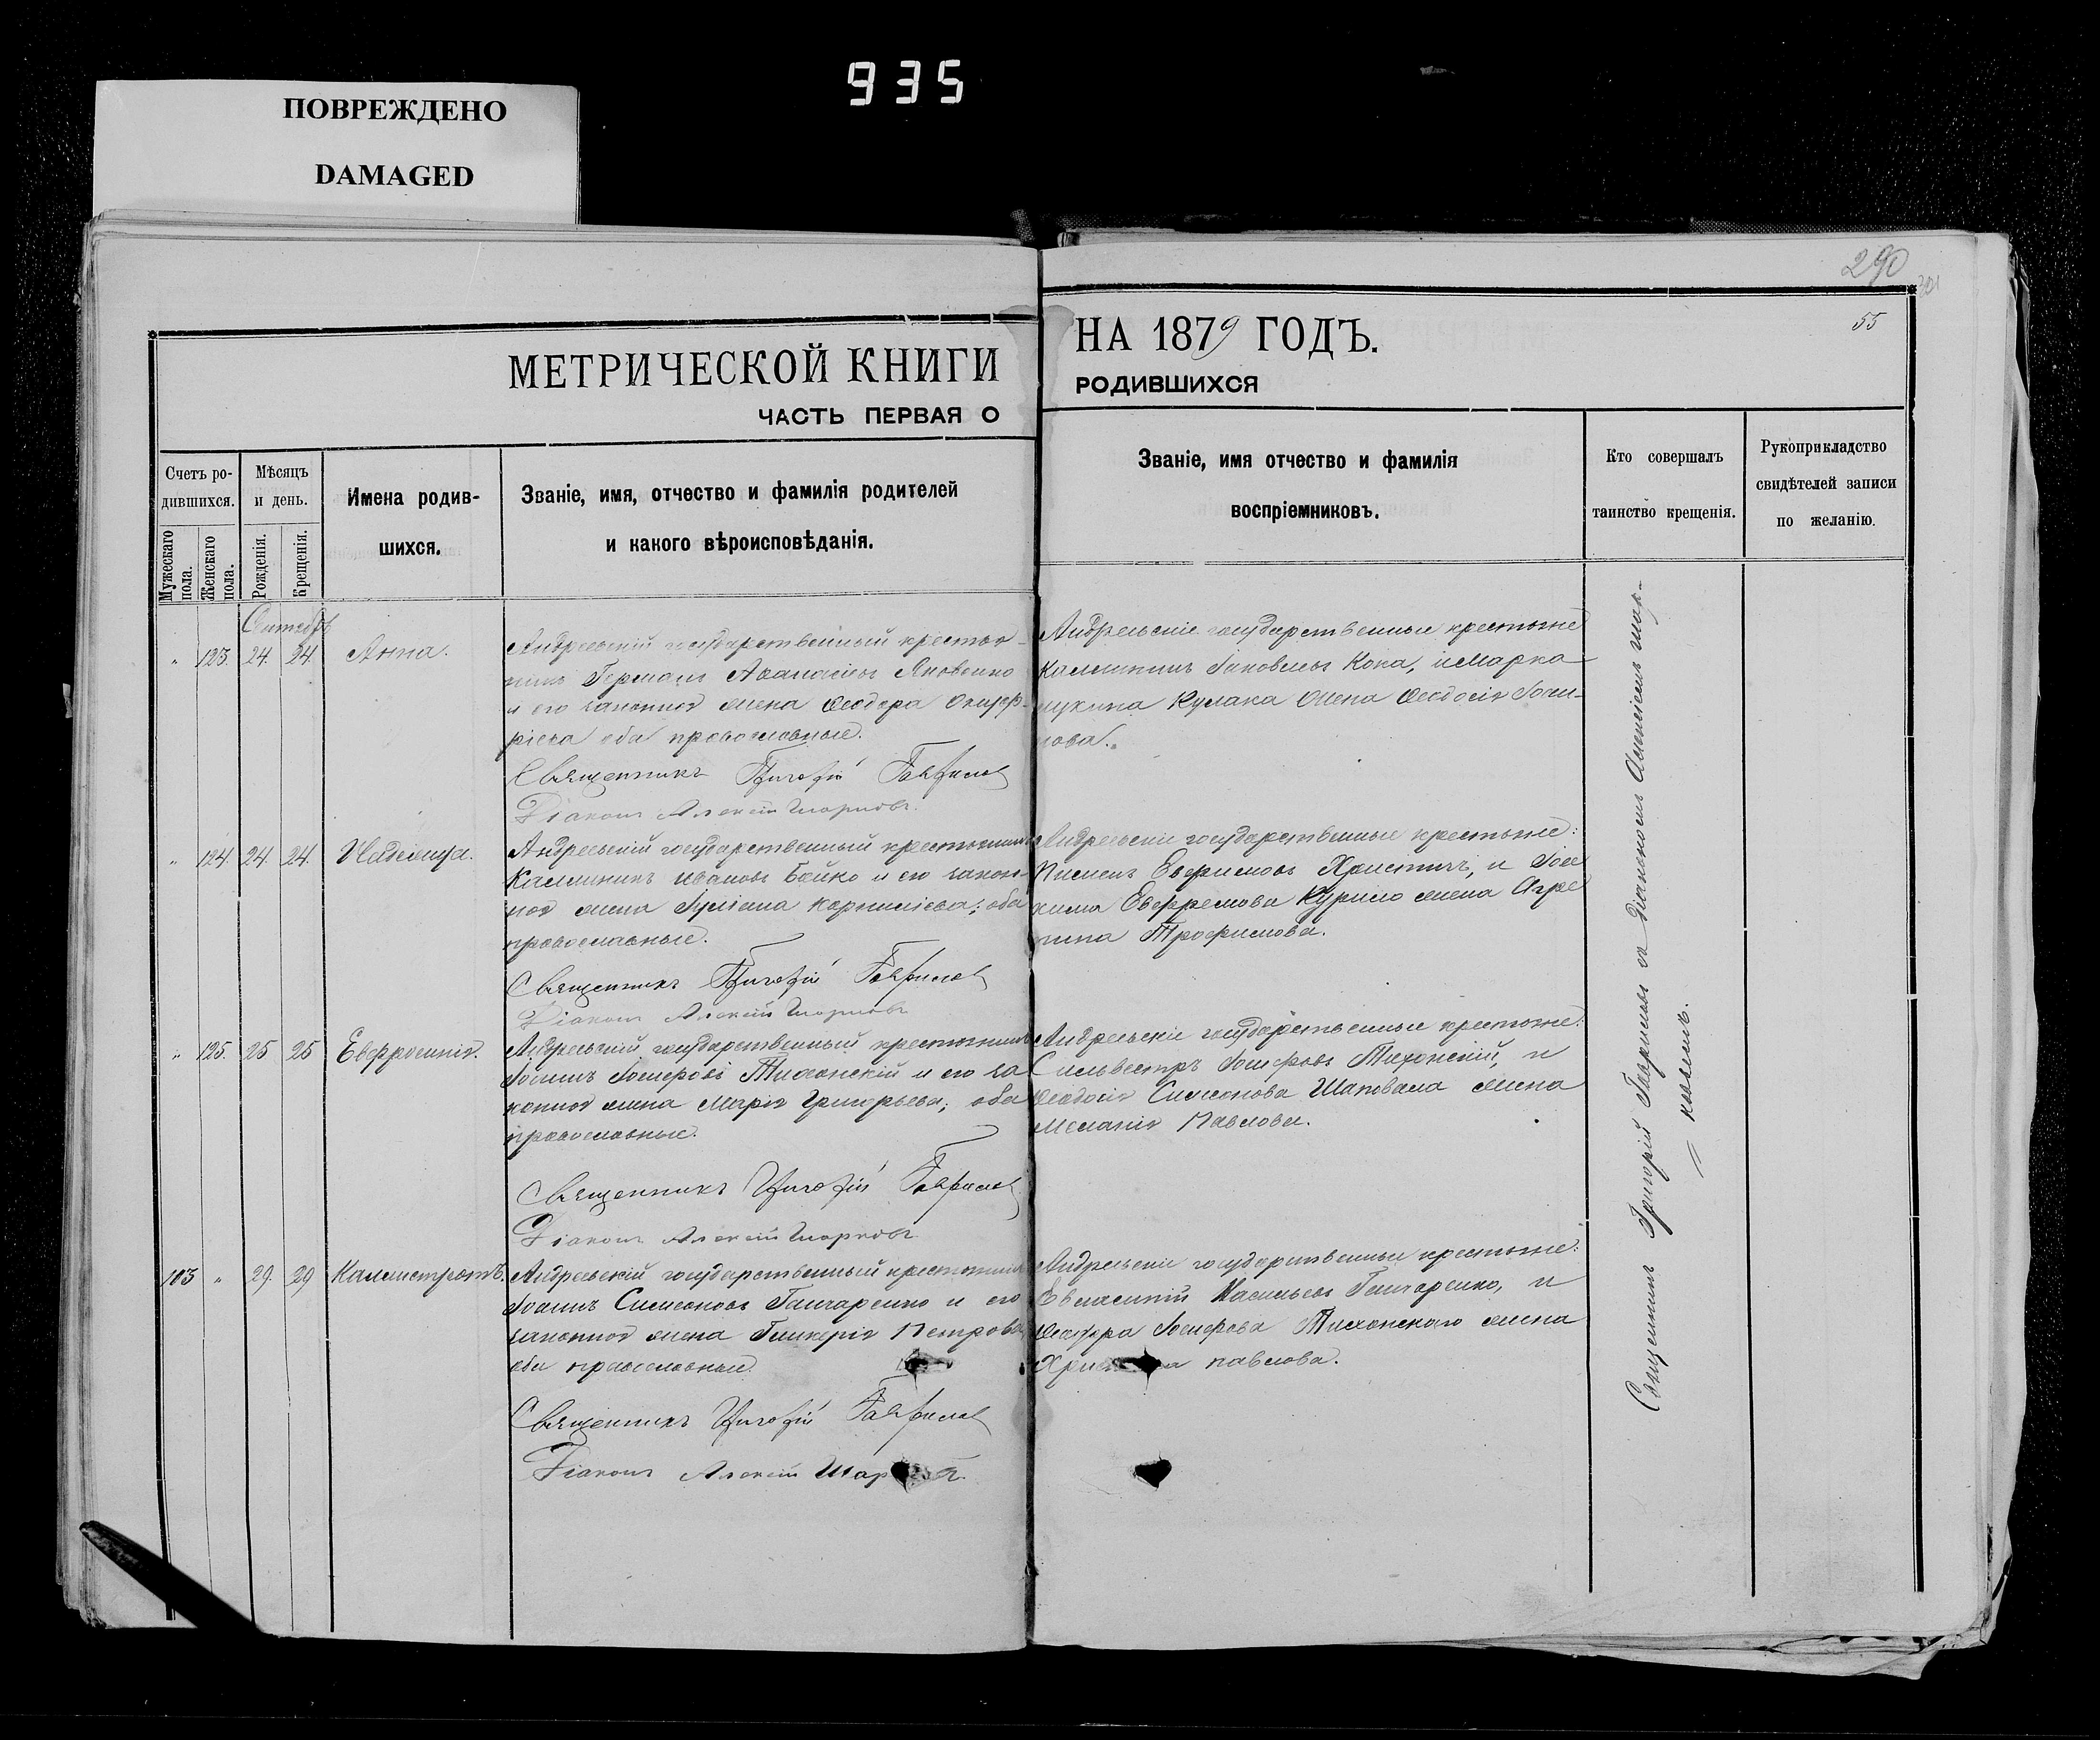 935
ПОВРЕЖДЕНО
DAMAGED
290
301
55
МЕТРИЧЕСКОЙ КНИГИ
ЧАСТЬ ПЕРВАЯ О
НА 1879 ГОДЪ.
РОДИВШИХСЯ
Счетъ ро-
дившихся.
Мужескаго пола.
Женскаго пола.
Мѣсяцъ
и день.
Рожденія.
Крещенія.
Имена родив-
шихся.
Званіе, имя, отчество и фамилія родителей
и какого вѣроисповѣданія.
Званіе, имя отчество и фамилія
воспріемниковъ.
Кто совершалъ
таинство крещенія.
Рукоприкладство
свидѣтелей записи
по желанію.
„ 123. 24. 24. Анна.
Андреевскій государственный крестья-
нинъ Германъ Аѳанасіевъ Яковенко
и его законная жена Ѳеодора
оба православные.
Священникъ Григорій Гаврилов
Діаконъ Алексій
Андреевскіе государственные крестьяне
Калинникъ Іаковлевъ Кока, и Марка
Кулака жена Ѳеодосія Іоан-
нова.
„ 124. 24. 24.
Андреевскій государственный крестьянинъ
Калинникъ Ивановъ Бойко и его закон-
ная жена Іуліана Корниліева; оба
православные.
Священникъ Григорій Гаврилов
Діаконъ Алексій
Андреевскіе государственные крестьяне:
Пименъ Ефримовъ Христичъ, и Іоа
кима Евфремова Курило жена Агре
пина Трофимова.
„ 125. 25 25 Евфросинія.
Андреевскій государственный крестьянинъ
Іоаннъ Іосифовъ Тихонскій и его за
конная жена Марія Григорьева; оба
православные.
Священникъ Григорій Гаврилов
Діаконъ Алексій
Андреевскіе государственные крестьяне:
Сильвестръ Іосифовъ Тихонскій, и
Ѳеодосія Симеонова Шаповала жена
Меланія Павлова.
103 „ 29. 29 Каллистратъ.
Андреевскій государственный крестьянинъ
Іоаннъ Симеоновъ Гончаренко и его
законная жена Гликерія Петрова
оба православные.
Священникъ Григорій Гаврилов
Діаконъ Алексій
Андреевскіе государственные крестьяне:
Васильевъ Гончаренко, и
Іосифова Тихонскаго жена
Павлова.
Священникъ Григорій Гавриловъ съ діакономъ Алексіемъ Шар-
ковымъ.